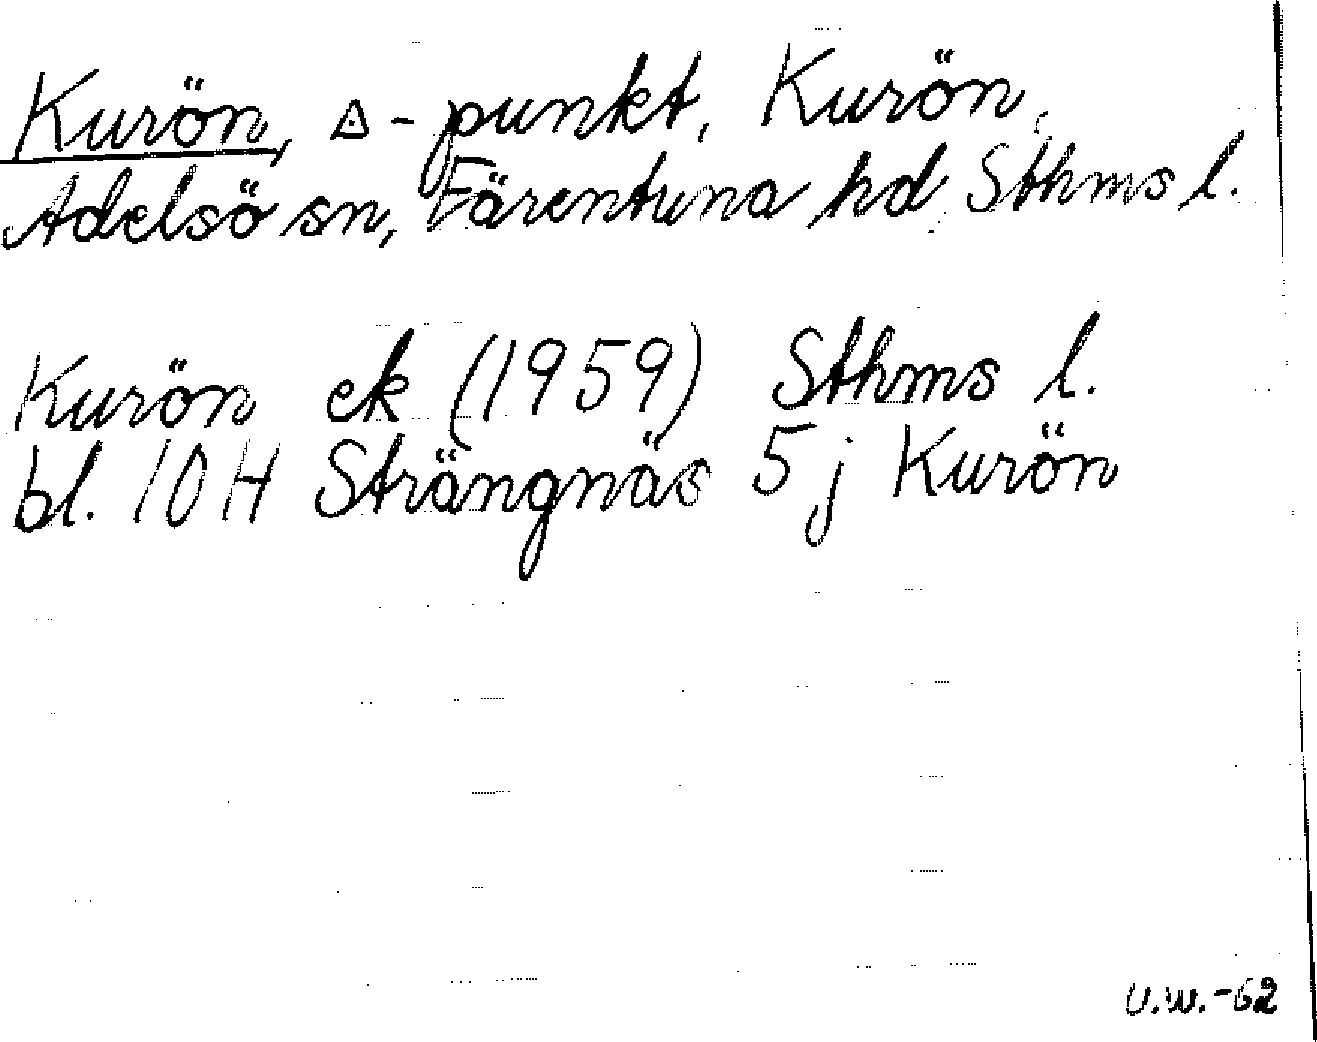 Kurön, △-punkt, Kurön,
Adelsö sn, Färentuna hd, Sthms l.
Kurön ek (1959) Sthms l.
bl. 10 H Strängnäs 5 j Kurön
U.W.-62